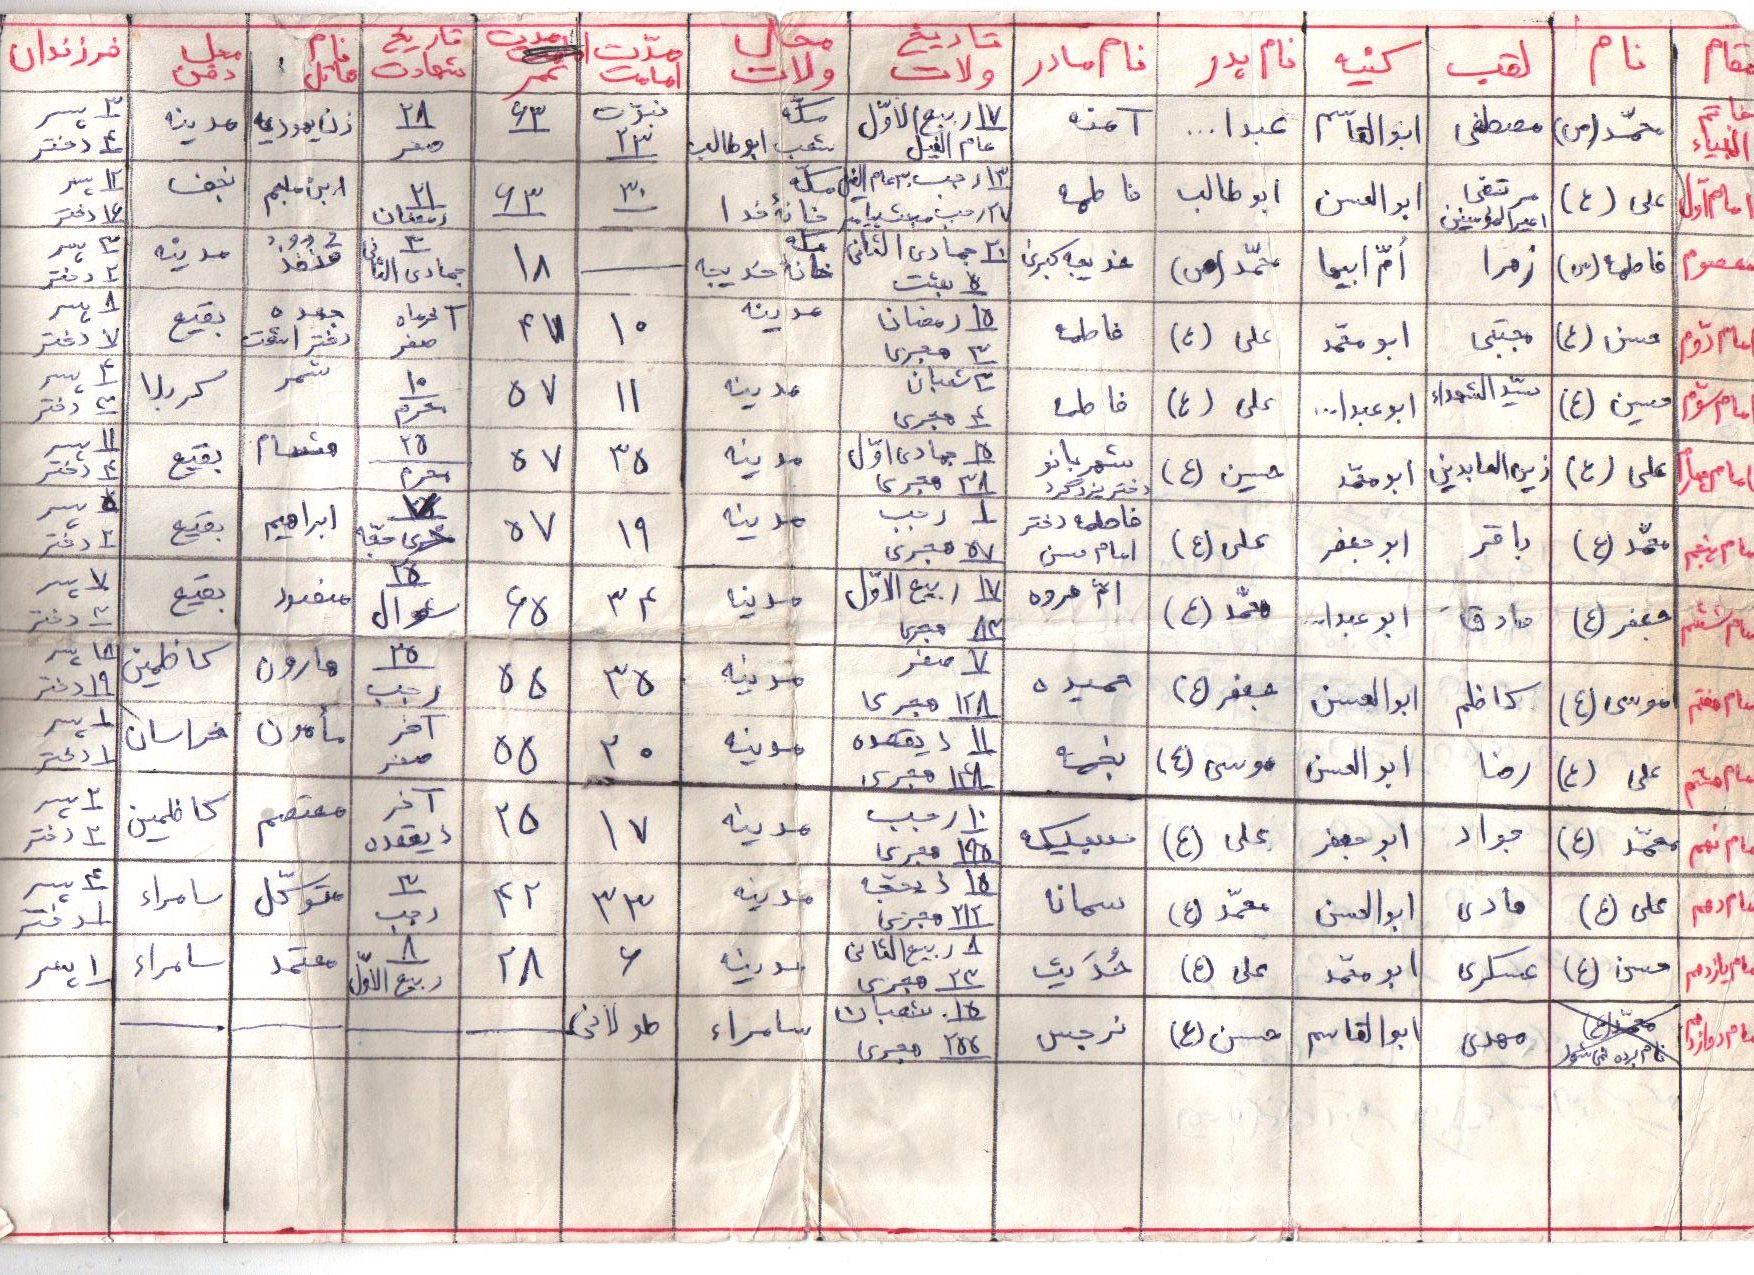 مقام نام لقب کنیه نام پدر نام مادر تاریخ ولات محل ولات مدّت امامت مدت عمر تاریخ شهادت نام قاتل محل دفن فرزندان
خاتم انبیاء محمّد (ص) مصطفی ابوالقاسم عبدا... آمنه ۱۷ ربیع الاوّل عام الفیل مکّه شعب ابوطالب نبوّت ۲۳ ۶۳ ۲۸ صفر زن یهودیه مدینه ۳ پسر ۴ دختر
امام اوّل علی (ع) مرتضی امیرالمؤمنین ابوالحسن ابوطالب فاطمه ۱۳ رجب ۳۰ عام الفیل مکّه خانهٔ خدا ۳۰ ۶۳ ۲۱ رمضان ابن ملجم نجف ۱۲ پسر ۱۶ دختر
معصوم فاطمه (س) زهرا اُمّ ابیها محمّد (ص) خدیجه کبری ۲۰ جمادی الثانی ۵ بعثت مکه خانهٔ خدیجه — ۱۸ ۳ جمادی الثانی قنفذ مدینه ۳ پسر ۲ دختر
امام دوّم حسن (ع) مجتبی ابو محمّد علی (ع) فاطمه ۱۵ رمضان ۳ هجری مدینه ۱۰ ۴۷ آخر ماه صفر جعده دختر اشعث بقیع ۸ پسر ۷ دختر
امام سوّم حسین (ع) سیّد الشهداء ابو عبدا... علی (ع) فاطمه ۳ شعبان ۴ هجری مدینه ۱۱ ۵۷ ۱۰ محرم شمر کربلا ۴ پسر ۳ دختر
امام چهارم علی (ع) زین العابدین ابو محمّد حسین (ع) شهربانو دختر یزدگرد ۱۵ جمادی اوّل ۳۸ هجری مدینه ۳۵ ۵۷ ۲۵ محرم هشام بقیع ۱۱ پسر ۴ دختر
امام پنجم محمّد (ع) باقر ابو جعفر علی (ع) فاطمه دختر امام حسن ۱ رجب ۵۷ هجری مدینه ۱۹ ۵۷ ذی حجّه ابراهیم بقیع ۵ پسر ۲ دختر
امام ششم جعفر (ع) صادق ابو عبدا... محمّد (ع) امّ فروه ۱۷ ربیع الاوّل ۸۳ هجری مدینه ۳۴ ۶۵ ۲۵ شوال منصور بقیع ۷ پسر ۳ دختر
امام هفتم موسی (ع) کاظم ابوالحسن جعفر (ع) حمیده ۷ صفر ۱۲۸ هجری مدینه ۳۵ ۵۵ ۲۵ رجب هارون کاظمین ۱۸ پسر ۱۹ دختر
امام هشتم علی (ع) رضا ابوالحسن موسی (ع) نجمه ۱۱ ذیقعده ۱۴۸ هجری مدینه ۲۰ ۵۵ آخر صفر مأمون خراسان ۱ پسر ۱ دختر
امام نهم محمّد (ع) جواد ابو جعفر علی (ع) سبیکه ۱۰ رجب ۱۹۵ هجری مدینه ۱۷ ۲۵ آخر ذیقعده معتصم کاظمین ۲ پسر ۲ دختر
امام دهم علی (ع) هادی ابوالحسن محمّد (ع) سمانه ۱۵ ذیحجّه ۲۱۲ هجری مدینه ۳۳ ۴۲ ۳ رجب متوکّل سامراء ۴ پسر ۱ دختر
امام یازدهم حسن (ع) عسکری ابو محمّد علی (ع) حُدَیث ۸ ربیع الثانی ۲۳ هجری مدینه ۶ ۲۸ ۸ ربیع الاوّل معتمد سامراء ۱ پسر
امام دوازدهم محمّد (ع) نام برده نمی شود مهدی ابوالقاسم حسن (ع) نرجس ۱۵ شعبان ۲۵۵ هجری سامراء طولانی — — — — —